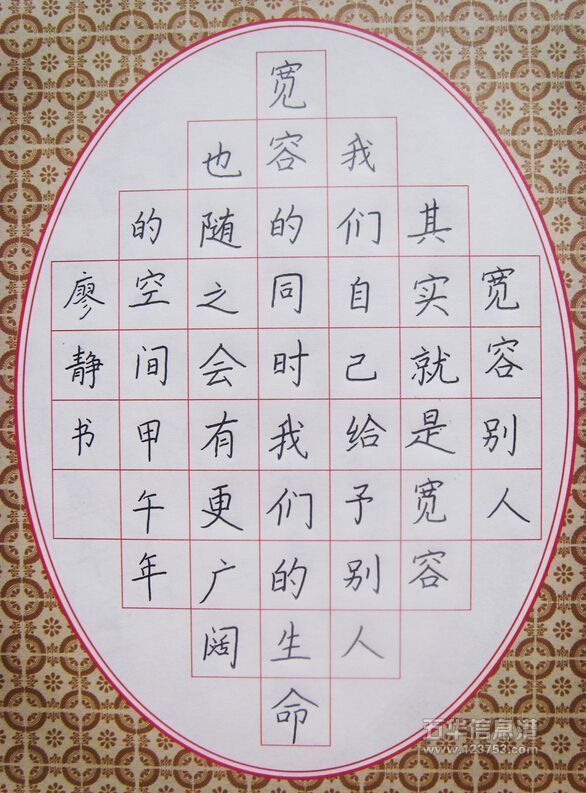 宽容别人
其实就是宽容
我们自己给予别人
宽容的同时我们的生命
也随之会有更广阔
的空间甲午年
廖静书
五华信息港
www.123753.com